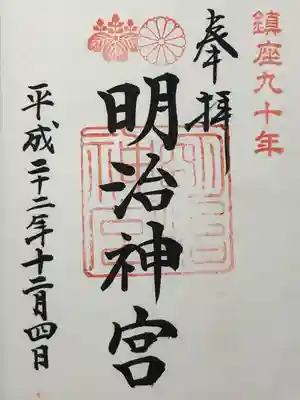 鎮座九十年
奉拝
明治神宮
明治神宮
平成二十二年十二月四日